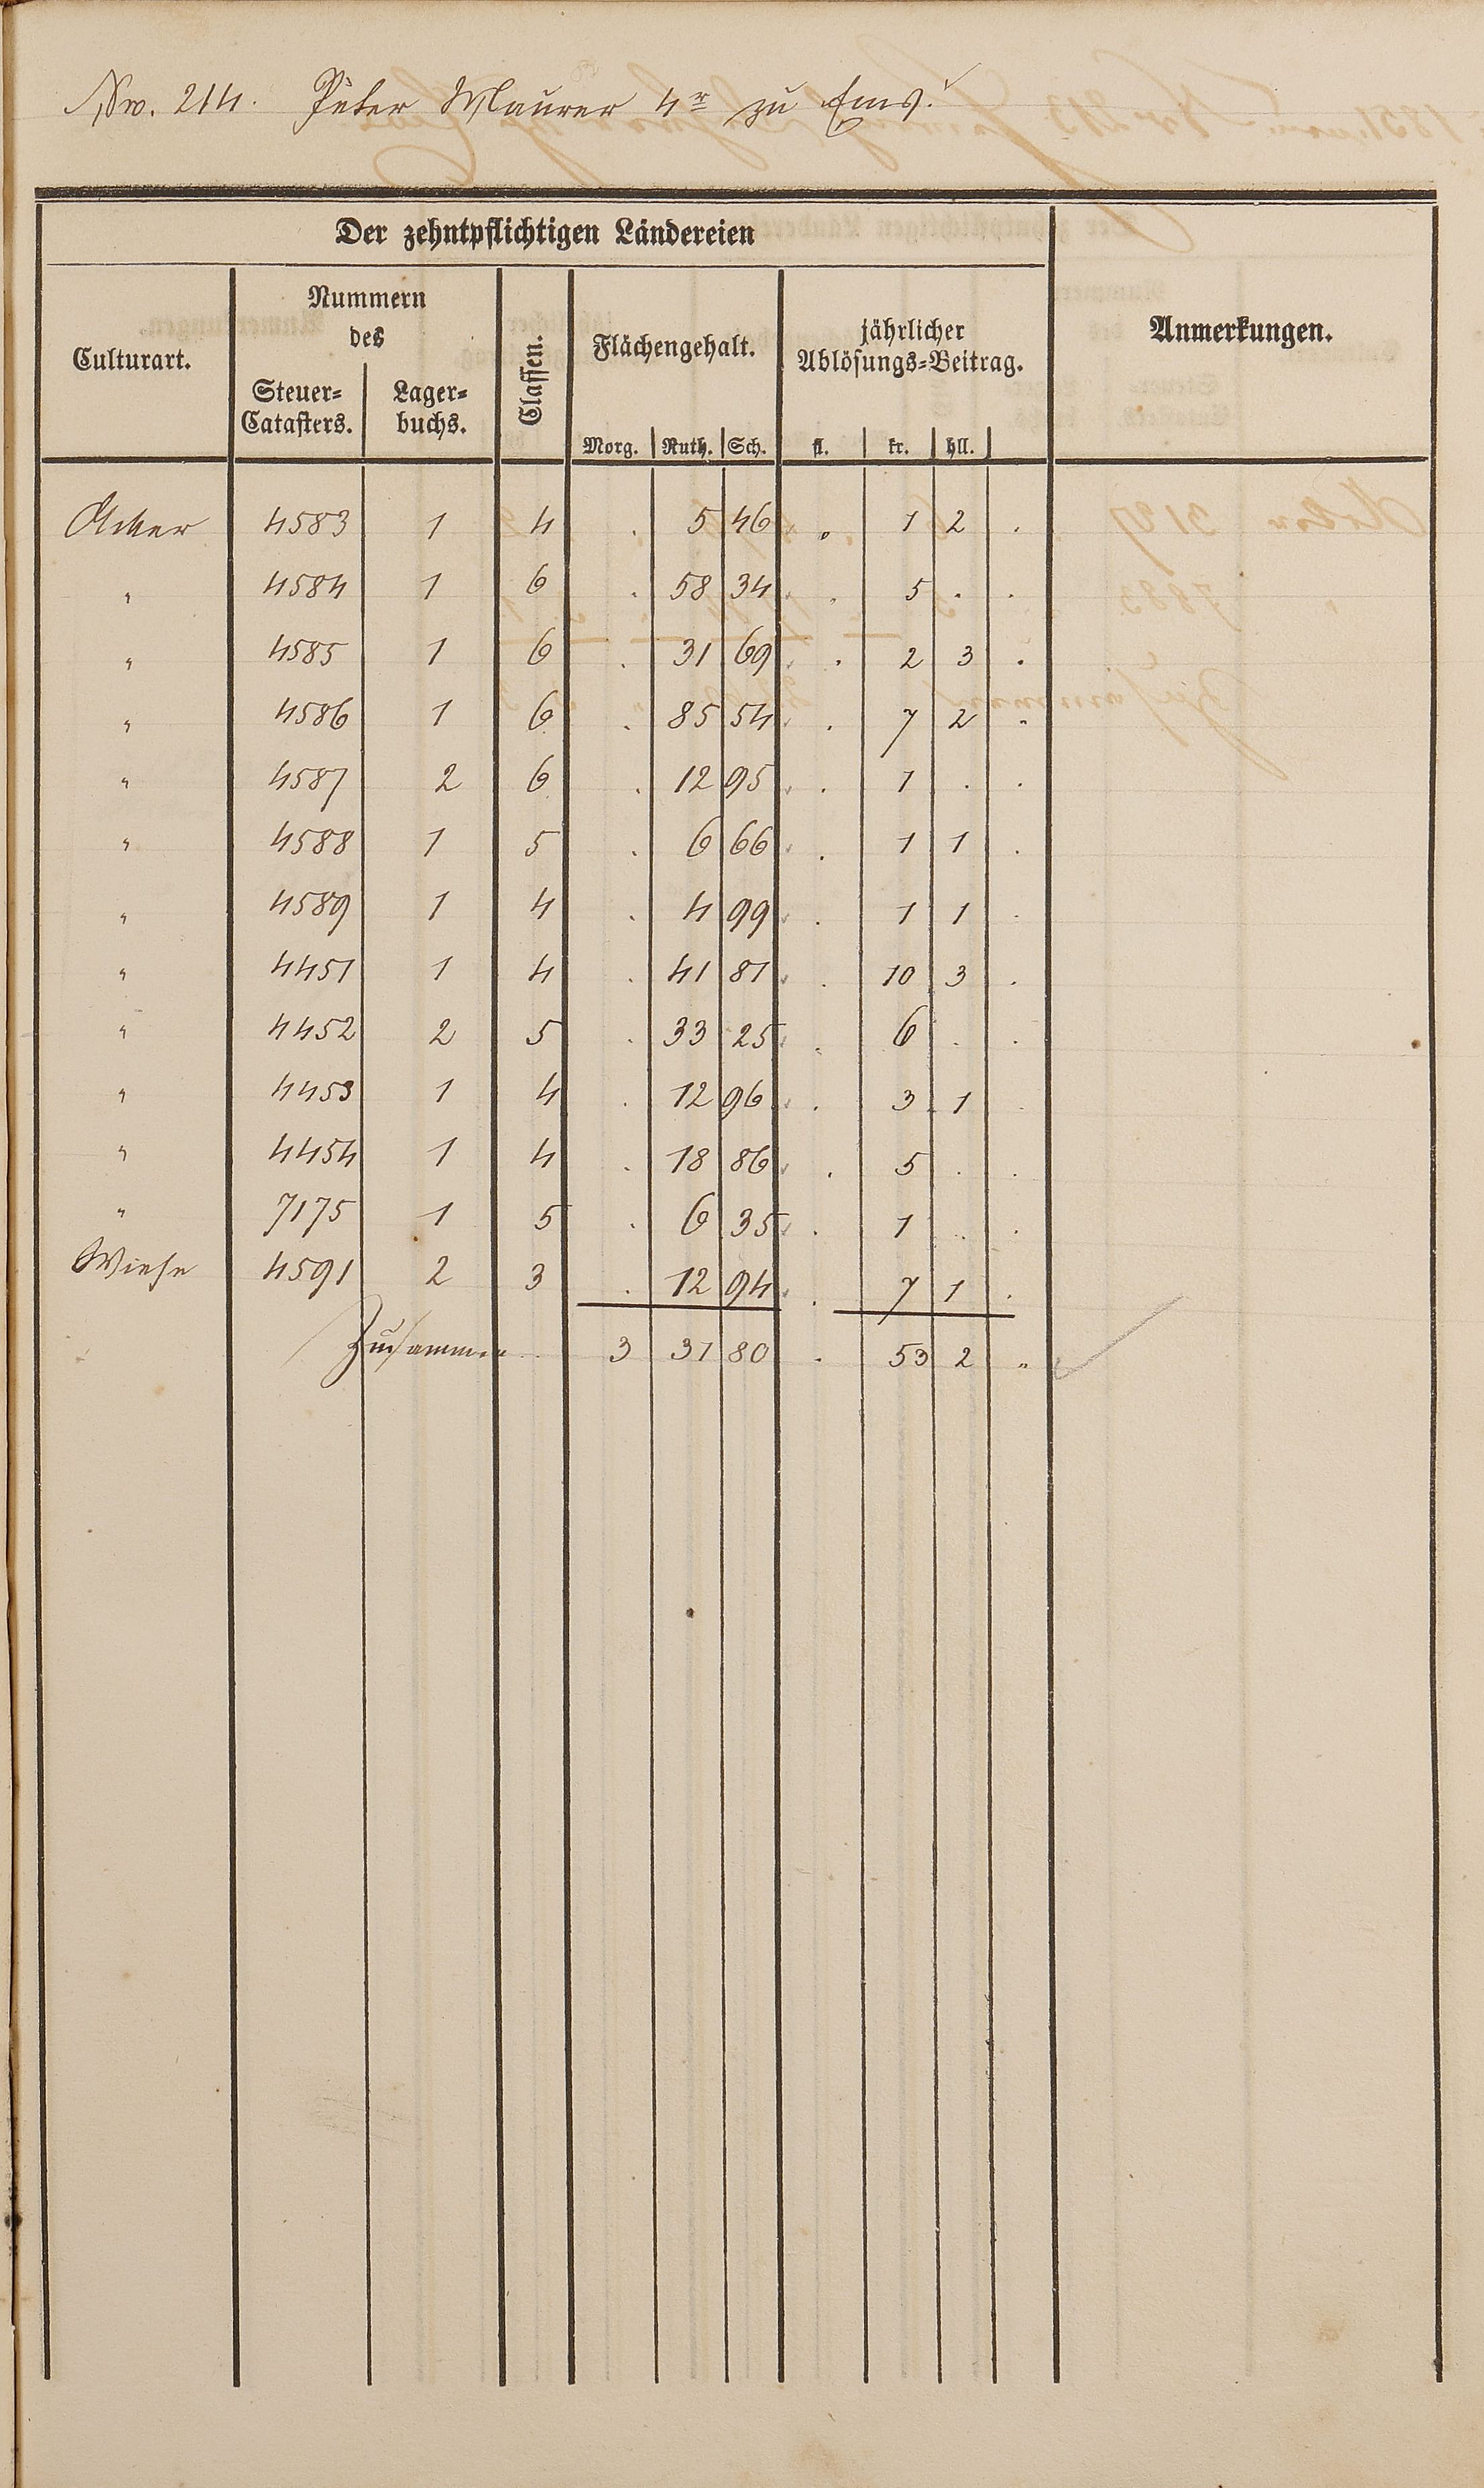 Nro. 214. Peter Maurer 4r zu Ems.
Der zehntpflichtigen Ländereien
Culturart.
Nummern
des
Steuer=
Catasters.
Lager=
buchs.
Classen.
Flächengehalt.
Morg. Ruth. Sch.
jährlicher
Ablösungs=Beitrag.
fl. kr. hll.
Anmerkungen.
Acker 4583 1 4 . 5 46 . 1 2 .
" 4584 1 6 . 58 34 . 5 . .
" 4585 1 6 . 31 69 . 2 3 .
" 4586 1 6 . 85 54 . 7 2 .
" 4587 2 6 . 12 95 . 1 . .
" 4588 1 5 . 6 66 . 1 1 .
" 4589 1 4 . 4 99 . 1 1 .
" 4451 1 4 . 41 81 . 10 3 .
" 4452 2 5 . 33 25 . 6 . .
" 4453 1 4 . 12 96 . 3 1 .
" 4454 1 4 . 18 86 . 5 . .
" 7175 1 5 . 6 35 . 1 . .
Wiese 4591 2 3 . 12 94 . 7 1 .
Zusammen 3 31 80 . 53 2 "